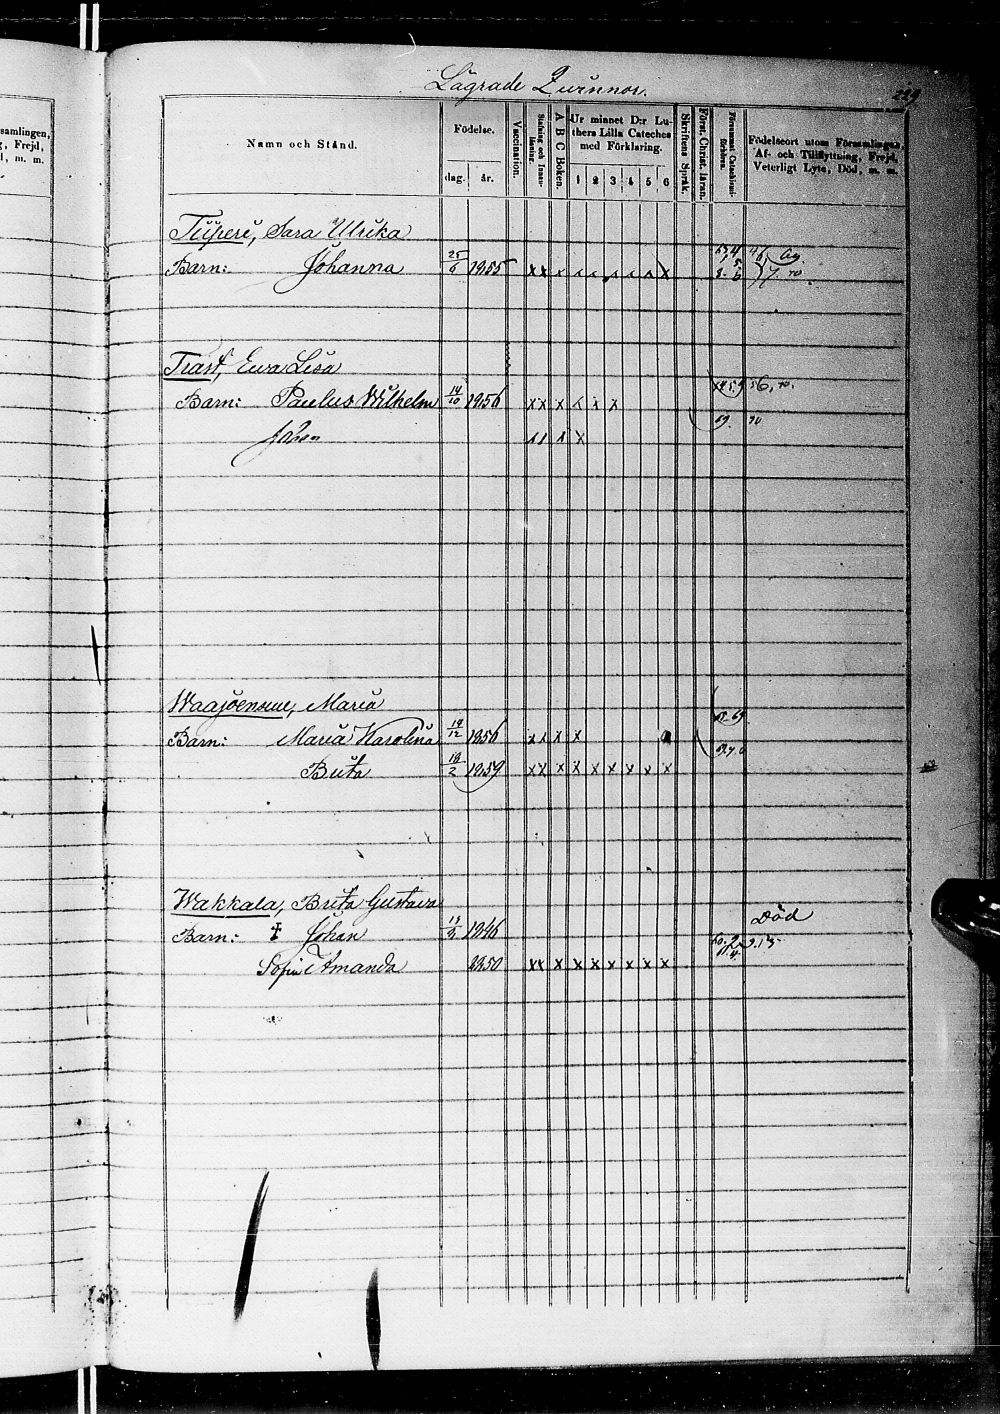 Lägrade Qvinnor.
229
Namn och Stånd.
Födelse.
dag. år.
Vaccination.
Stafning och Innanläsning.
A B C Boken.
Ur minnet D:r Luthers Lilla Cateches med Förklaring.
1 2 3 4 5 6
Skriftens Språk.
Först. Christ. läran.
Försummat Catechismiförhören.
Födelseort utom Församlingen, Af- och Tillflyttning, Frejd, Veterligt Lyte, Död, m. m.
samlingen,
Frejd,
m. m.
Sara Ulrika
Barn: Johanna 25/6 1855 x x x x x x x x x
Trast, Ewa Lisa
Barn: Paulus Wilhelm 14/10 1856 x x x x x x
Johan x x x x
Maria
Barn: Maria Karolina 19/12 1856 x x x x
Brita 18/2 1859 x x x x x x x x x
Wakkala, Brita Gustava
Död
Barn: Johan 1846
Sofia Amanda 1850 x x x x x x x x x